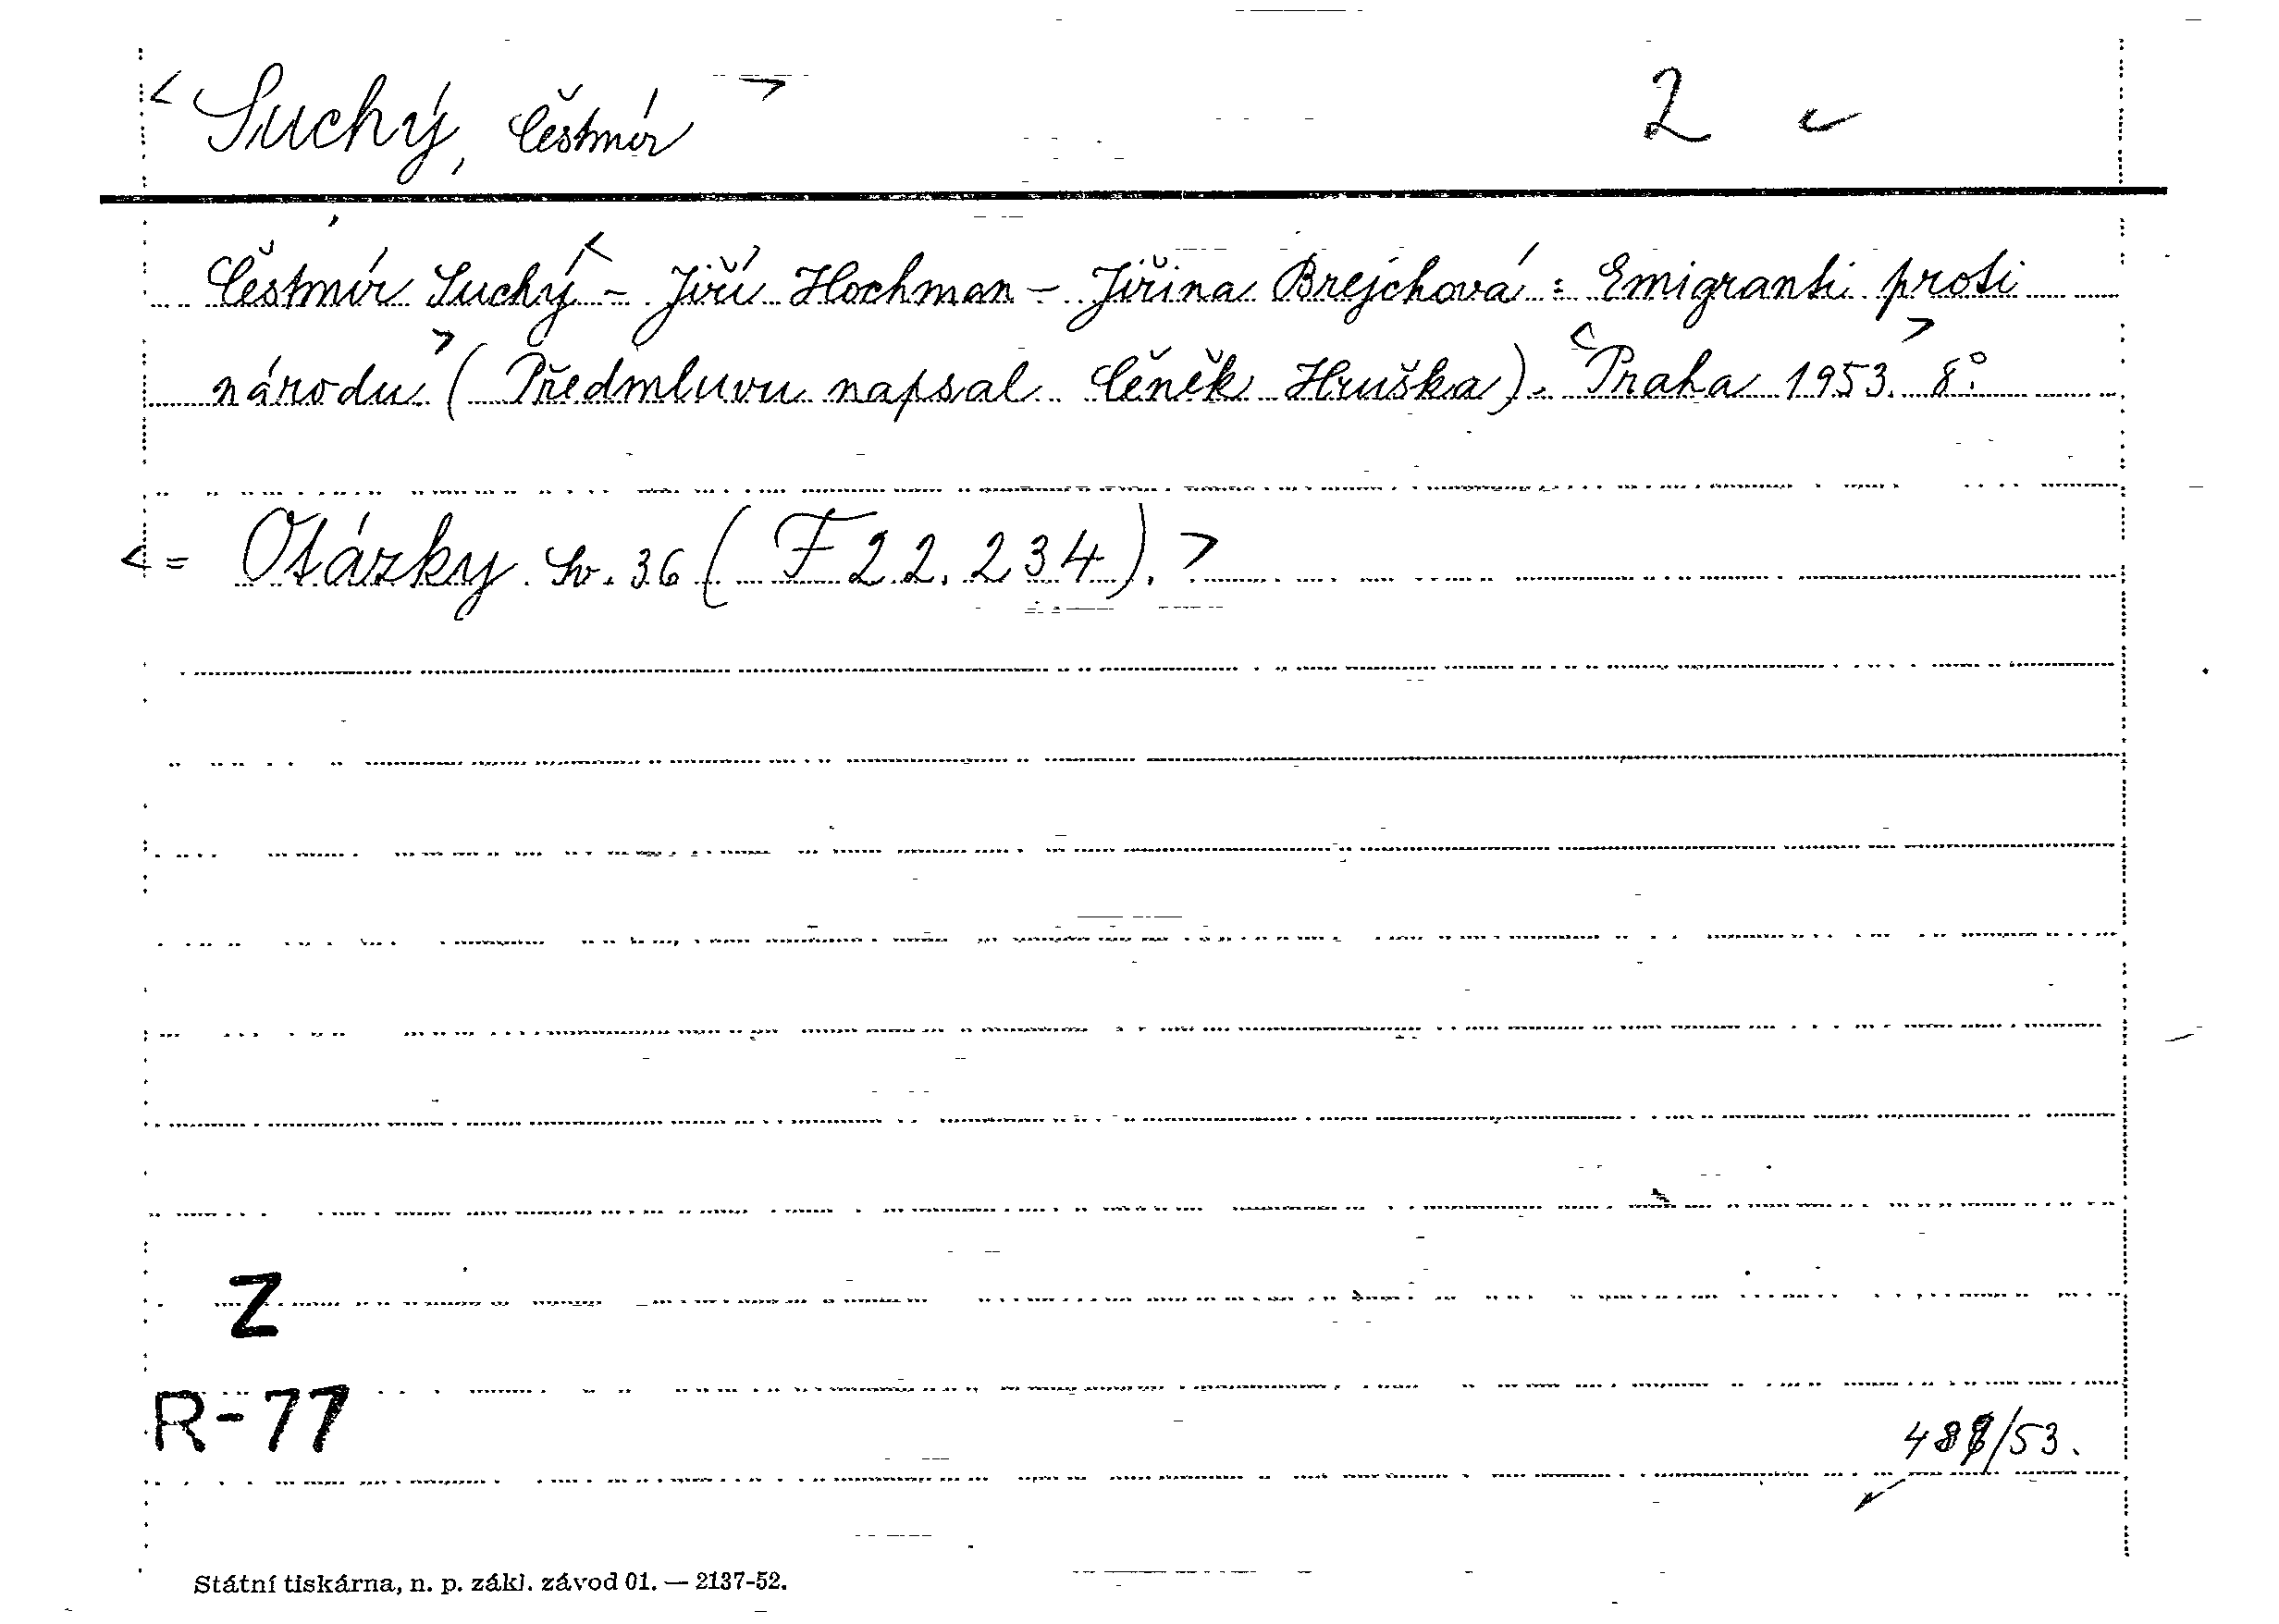 < Suchý, Čestmír > 2
Čestmír Suchý < - Jiří Hochman - Jiřina Brejchová: Emigranti proti
národu > (Předmluvu napsal Čeněk Hruška). < Praha 1953. > 8°.
< = Otázky. Sv. 36 (F 22.234). >
Z
R-77
/53.
Státní tiskárna, n. p. zákl. závod 01. — 2137-52.